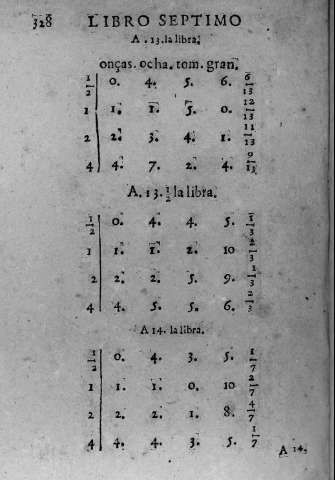 328 LIBRO SEPTIMO
A . 13. la libra.
onças. ocha. tom. gran.
1/2 0. 4. 5. 6. 6/13
1 1. 1. 5. 0. 12/13
2 2. 3. 4. 1. 11/13
4 4. 7. 2. 4. 9/13
A. 13. 1/2 la libra.
1/2 0. 4. 4. 5. 1/3
1 1. 1. 2. 10 2/3
2 2. 2. 5. 9. 1/3
4 4. 5. 5. 6. 2/3
A 14. la libra.
1/2 0. 4. 3. 5. 1/7
1 1. 1. 0. 10 2/7
2 2. 2. 1. 8. 4/7
4 4. 4. 3. 5. 1/7
A 14.